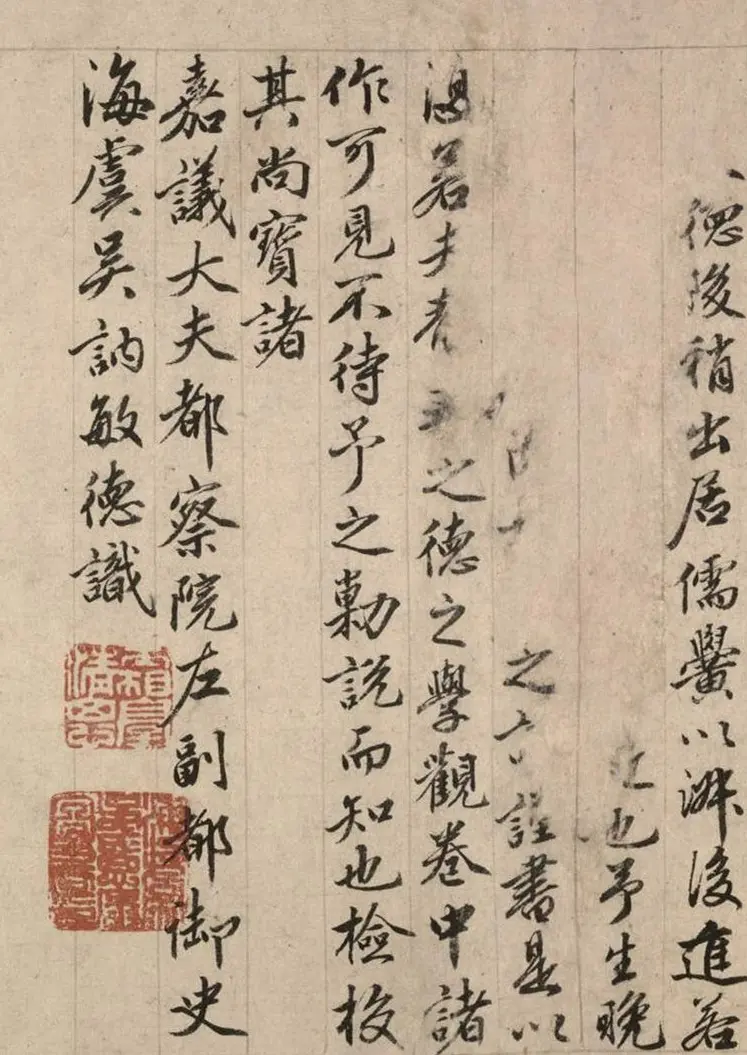 德後稍出居儒黌以淑後進若
也予生晚
之 詮書是以
若夫 之德之學觀卷中諸
作可見不待予之勦說而知也檢校
其尚寶諸
嘉議大夫都察院左副都御史
海虞吳訥敏德識